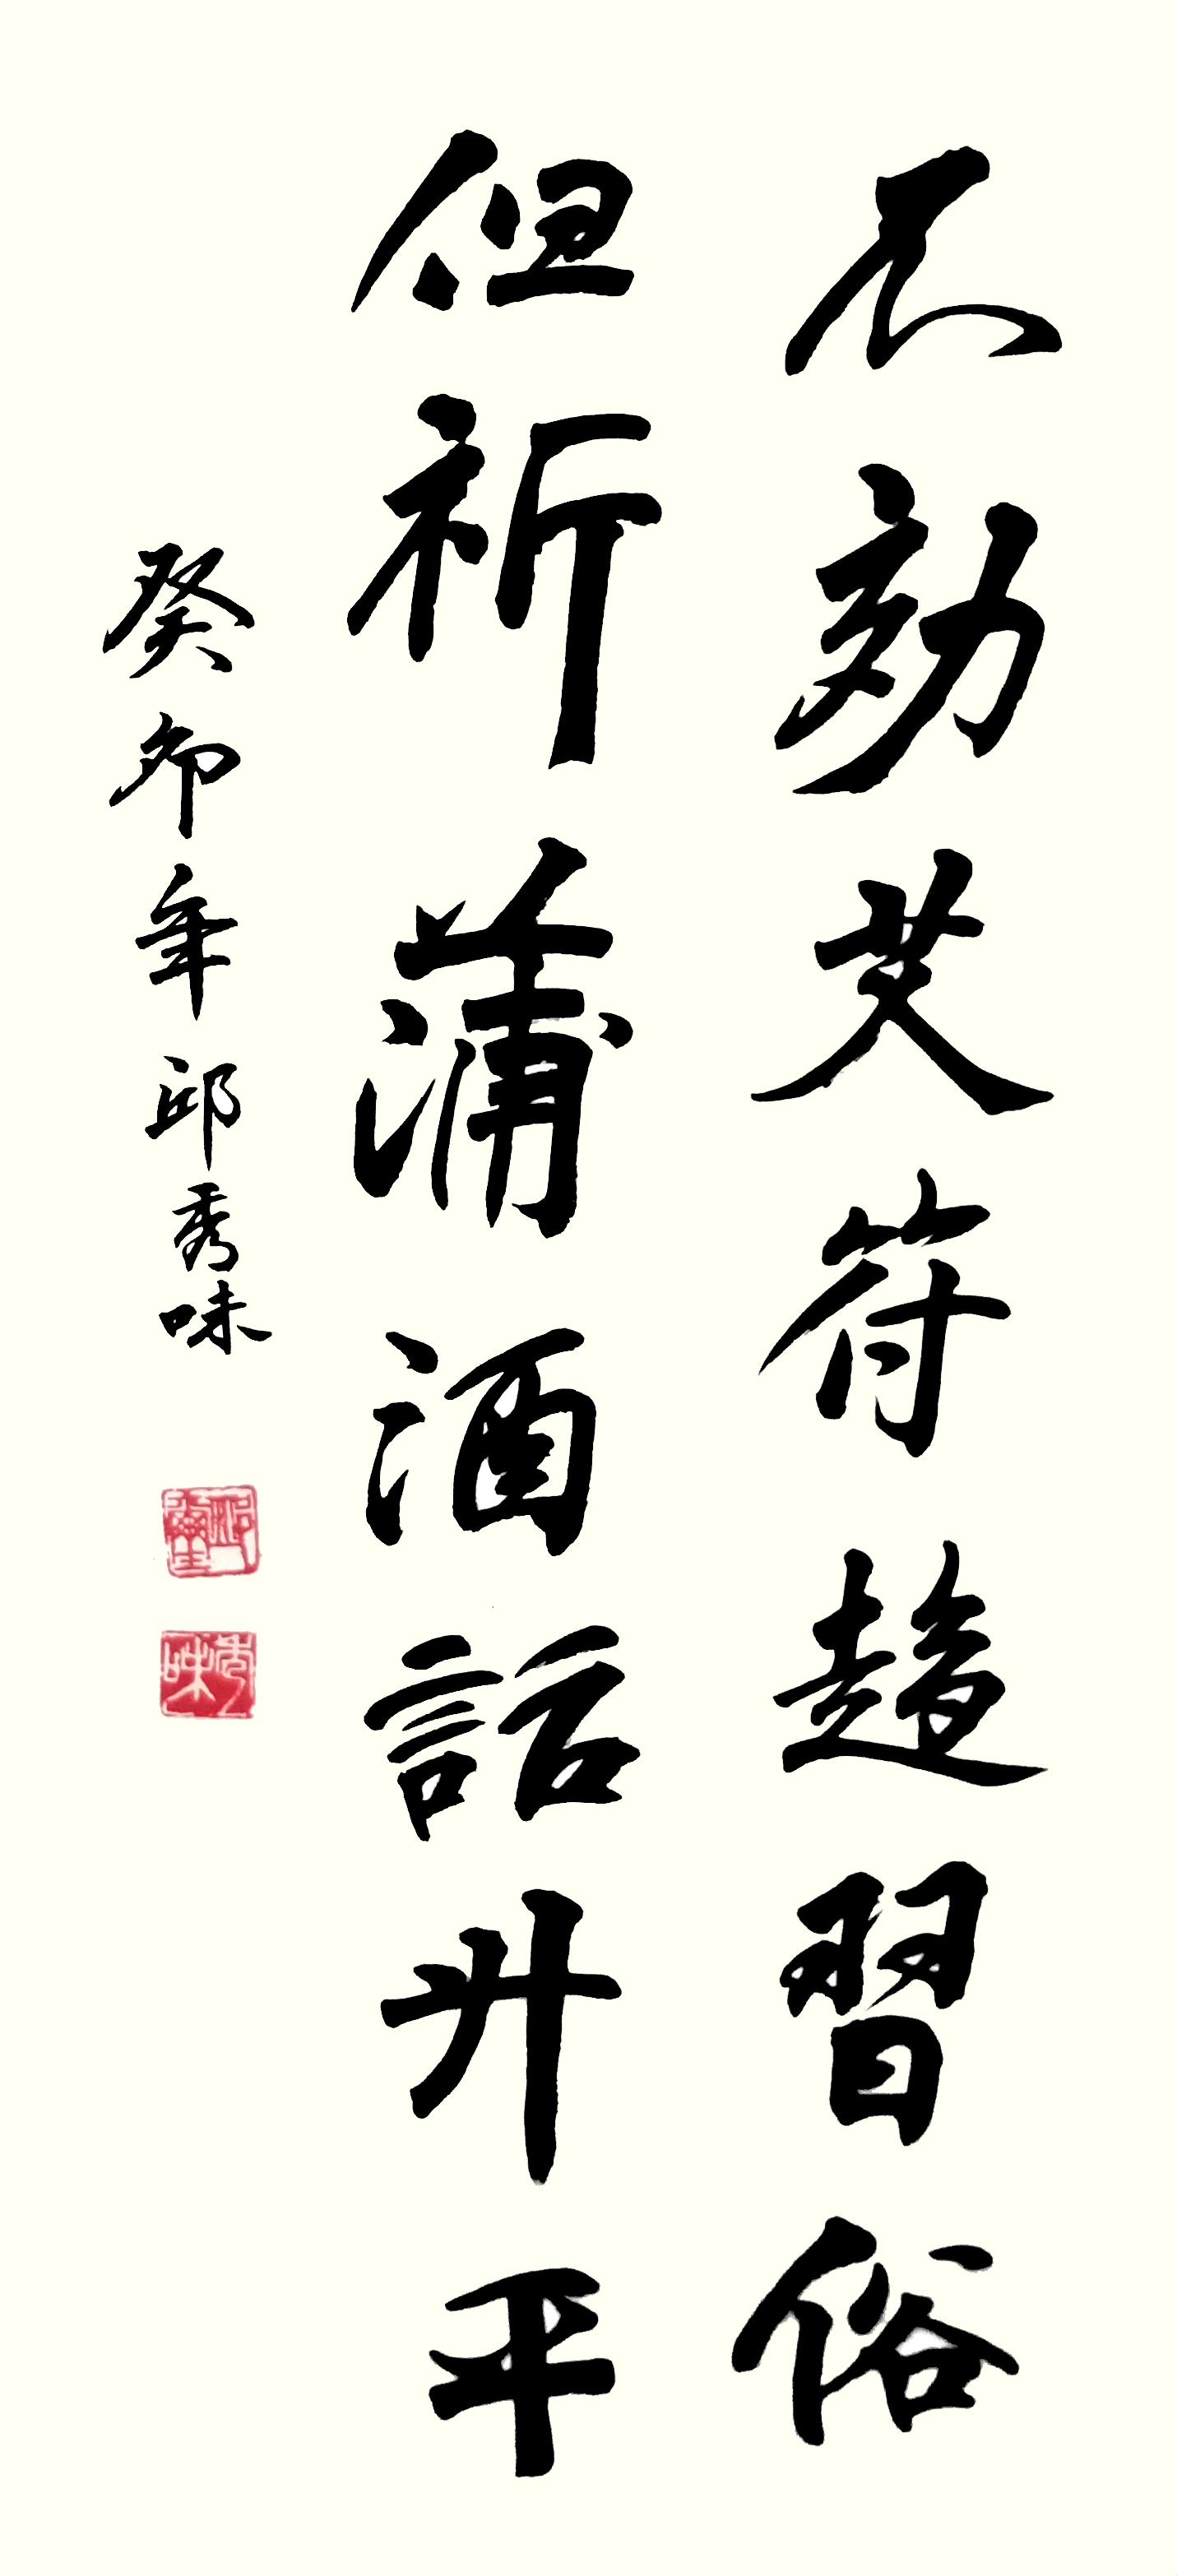 不効艾符趍習俗
但祈蒲酒話升平
癸卯年 邱秀味
秀味